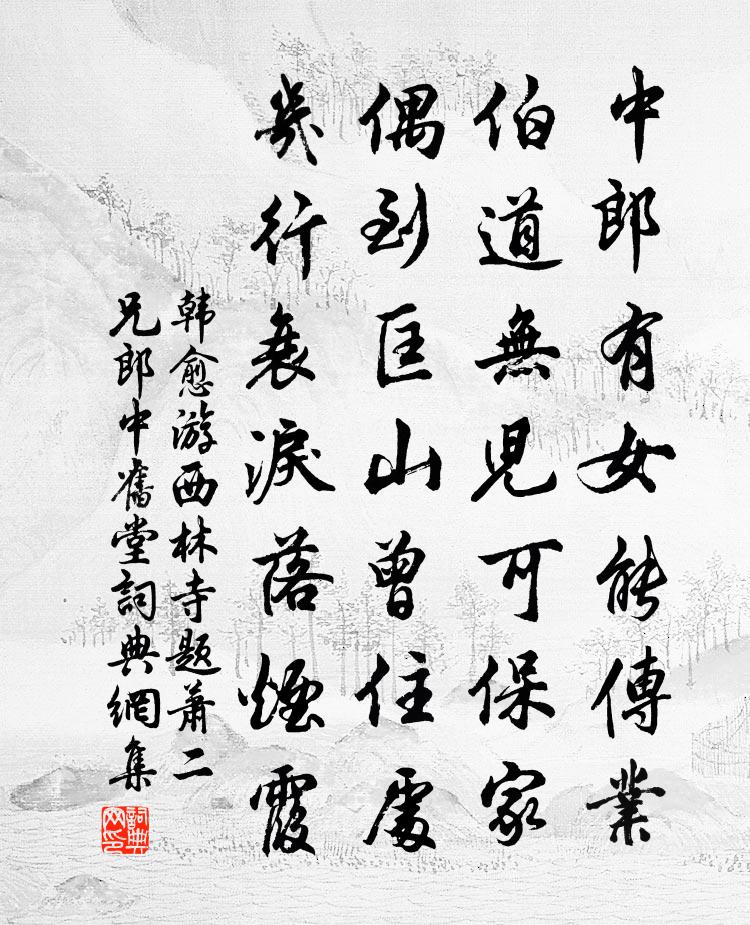 中郎有女能傳業
伯道無兒可保家
偶到匡山曾住處
幾行衰淚落煙霞
韩愈游西林寺題蕭二
兄郎中舊堂詞典網集
詞典网印